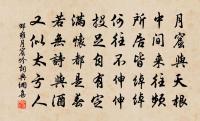 月窟與天根
中間來往頻
所居皆綽綽
何往不伸伸
投足自有定
滿懷都是春
若無詩與酒
又似太亏人
邵雍月窟吟